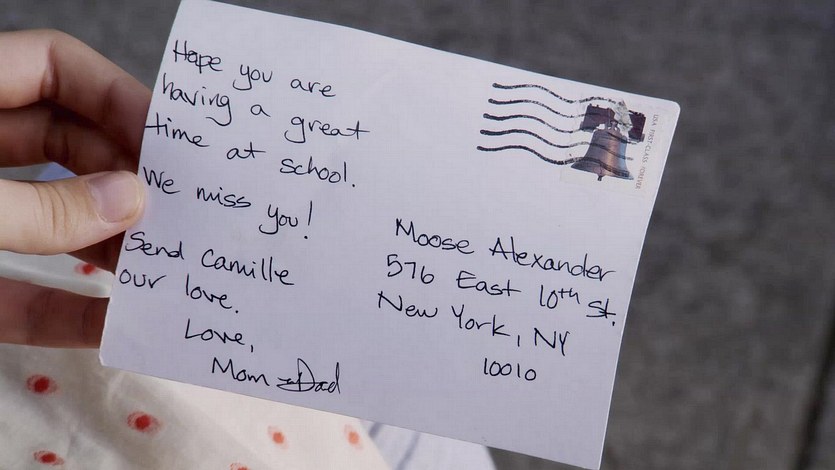 Hope you are
having a great
time at school.
We miss you!
Send Camille
our love.
Love,
Mom & Dad
USA FIRST-CLASS FOREVER
Moose Alexander
576 East 10th St.
New York, NY
10010